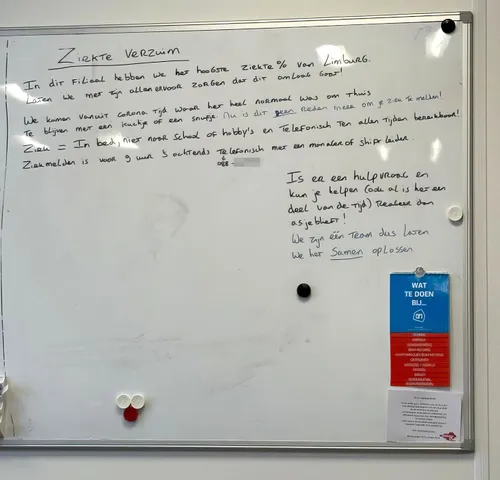 Ziekte verzuim
In dit Filiaal hebben we het hoogste ziekte % van Limburg.
Laten we met zijn allen ervoor zorgen dat dit omlaag gaat!
We komen vanuit corona tijd waar het heel normaal was om thuis
Te blijven met een kuchje of een snufje. Nu is dit geen reden meer om je ziek te melden!
Ziek = In bed, niet naar school of hobby's en Telefonisch ten allen tijden bereikbaar!
Ziekmelden is voor 9 uur 's ochtends telefonisch met een manager of shiftleider.
088
Is er een hulpvraag en
kun je helpen (ook al is het een
deel van de tijd) Reageer dan
asjeblieft!
We zijn één Team dus laten
We het Samen oplossen
WAT
TE DOEN
BIJ...
ah